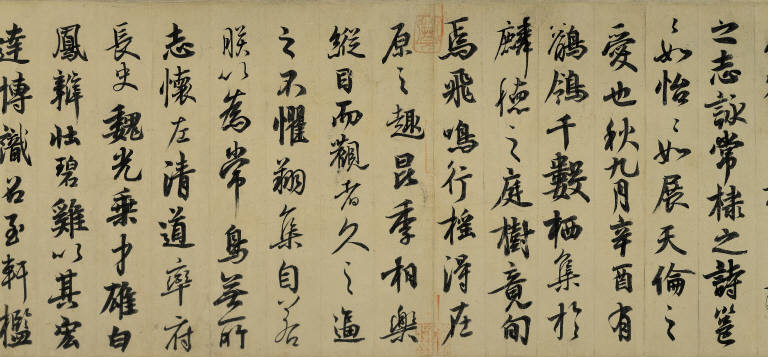 之志詠常棣之詩邕
〻如怡〻如展天倫之
愛也秋九月辛酉有
鶺鴒千數栖集於
麟德之庭樹竟旬
焉飛鳴行搖得在
原之趣昆季相樂
縱目而觀者久之逼
之不懼翔集自若
朕以為常鳥無所
志懷左清道率府
長史魏光乘才雄白
鳳辯壯碧雞以其宏
達博識召至軒檻